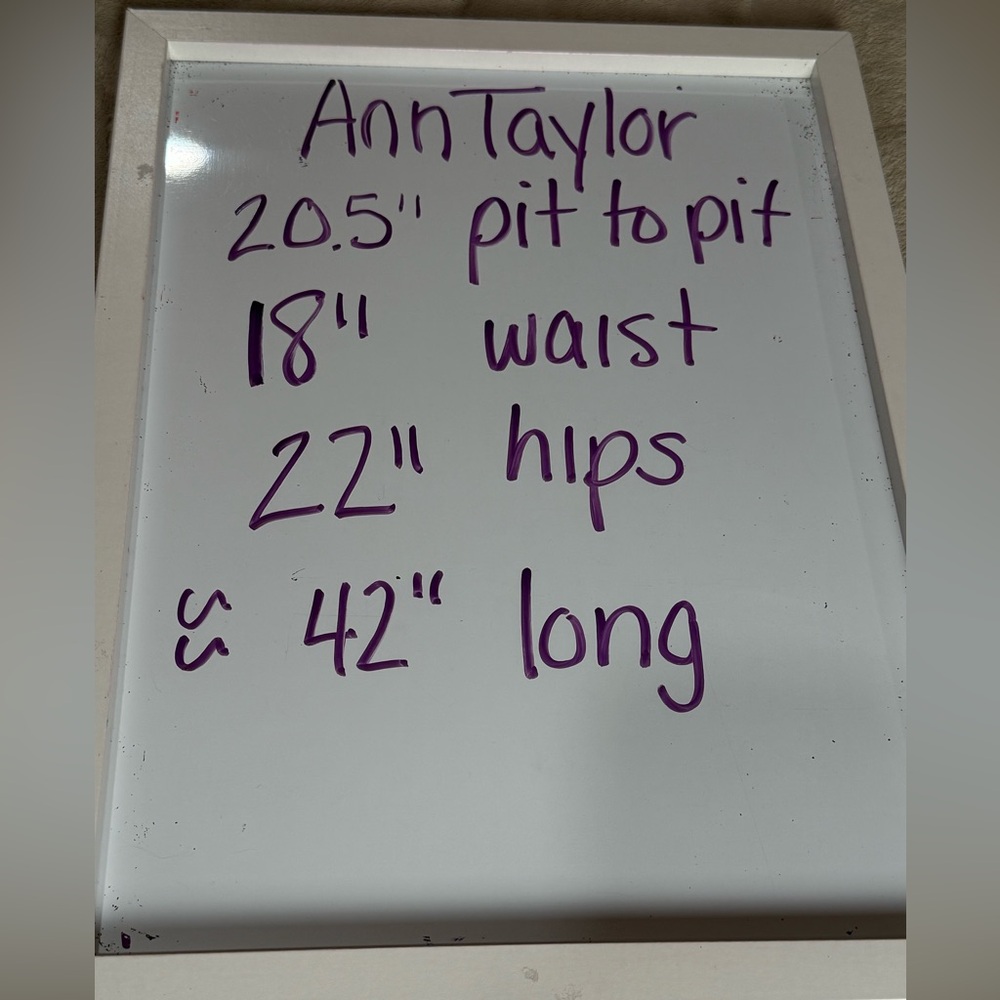 Ann Taylor
20.5" pit to pit
18" waist
22" hips
≈ 42" long